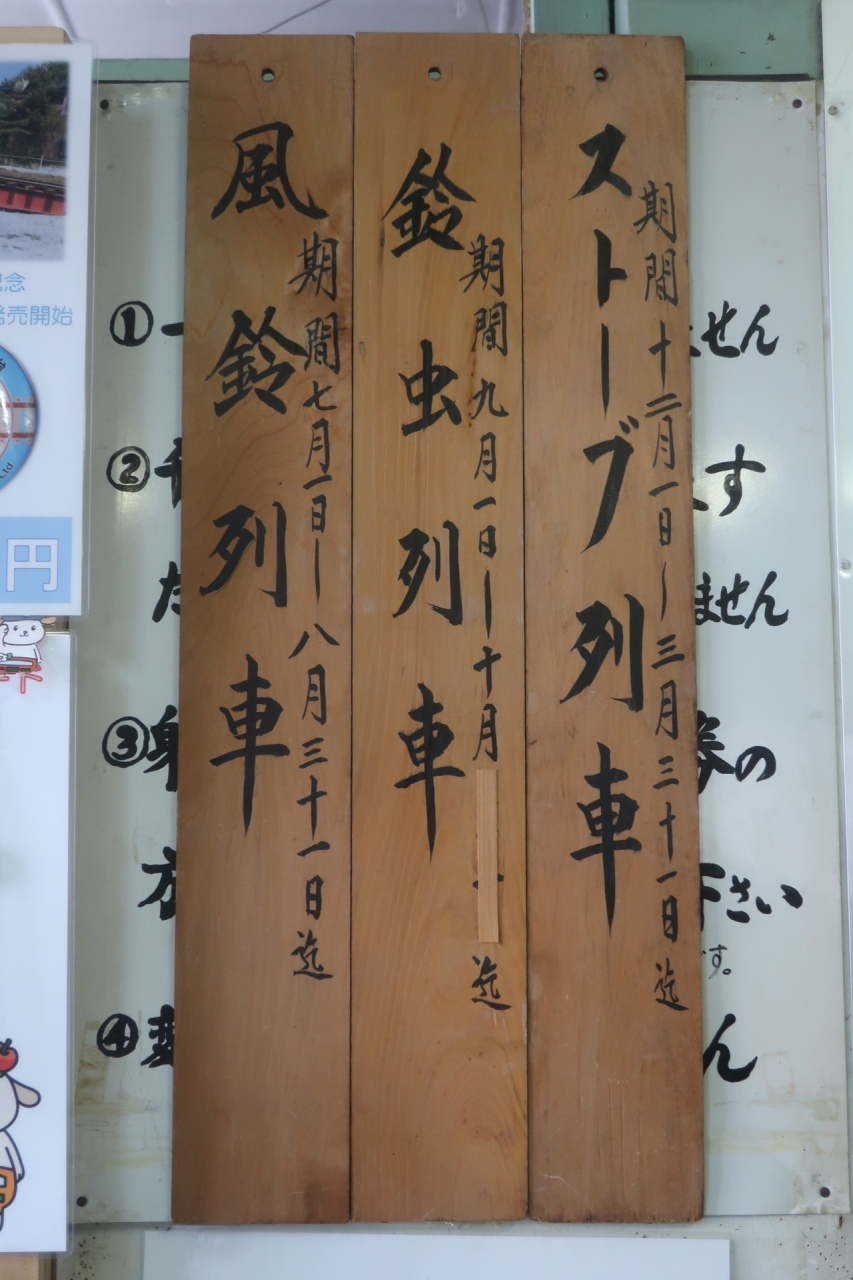 ストーブ列車
期間 十二月一日〜三月三十一日迄
鈴虫列車
期間 九月一日ー十月
迄
風鈴列車
期間 七月一日ー八月三十一日迄
①
せん
②
す
た
ません
③
の
下さい
です。
④
ん
念
発売開始
円
Ltd